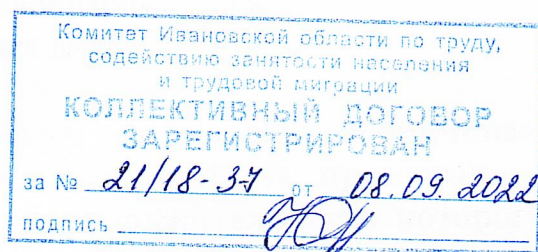 Комитет Ивановской области по труду,
содействию занятости населения
и трудовой миграции
КОЛЛЕКТИВНЫЙ ДОГОВОР
ЗАРЕГИСТРИРОВАН
за № 21/18-37 от 08.09.2022
подпись